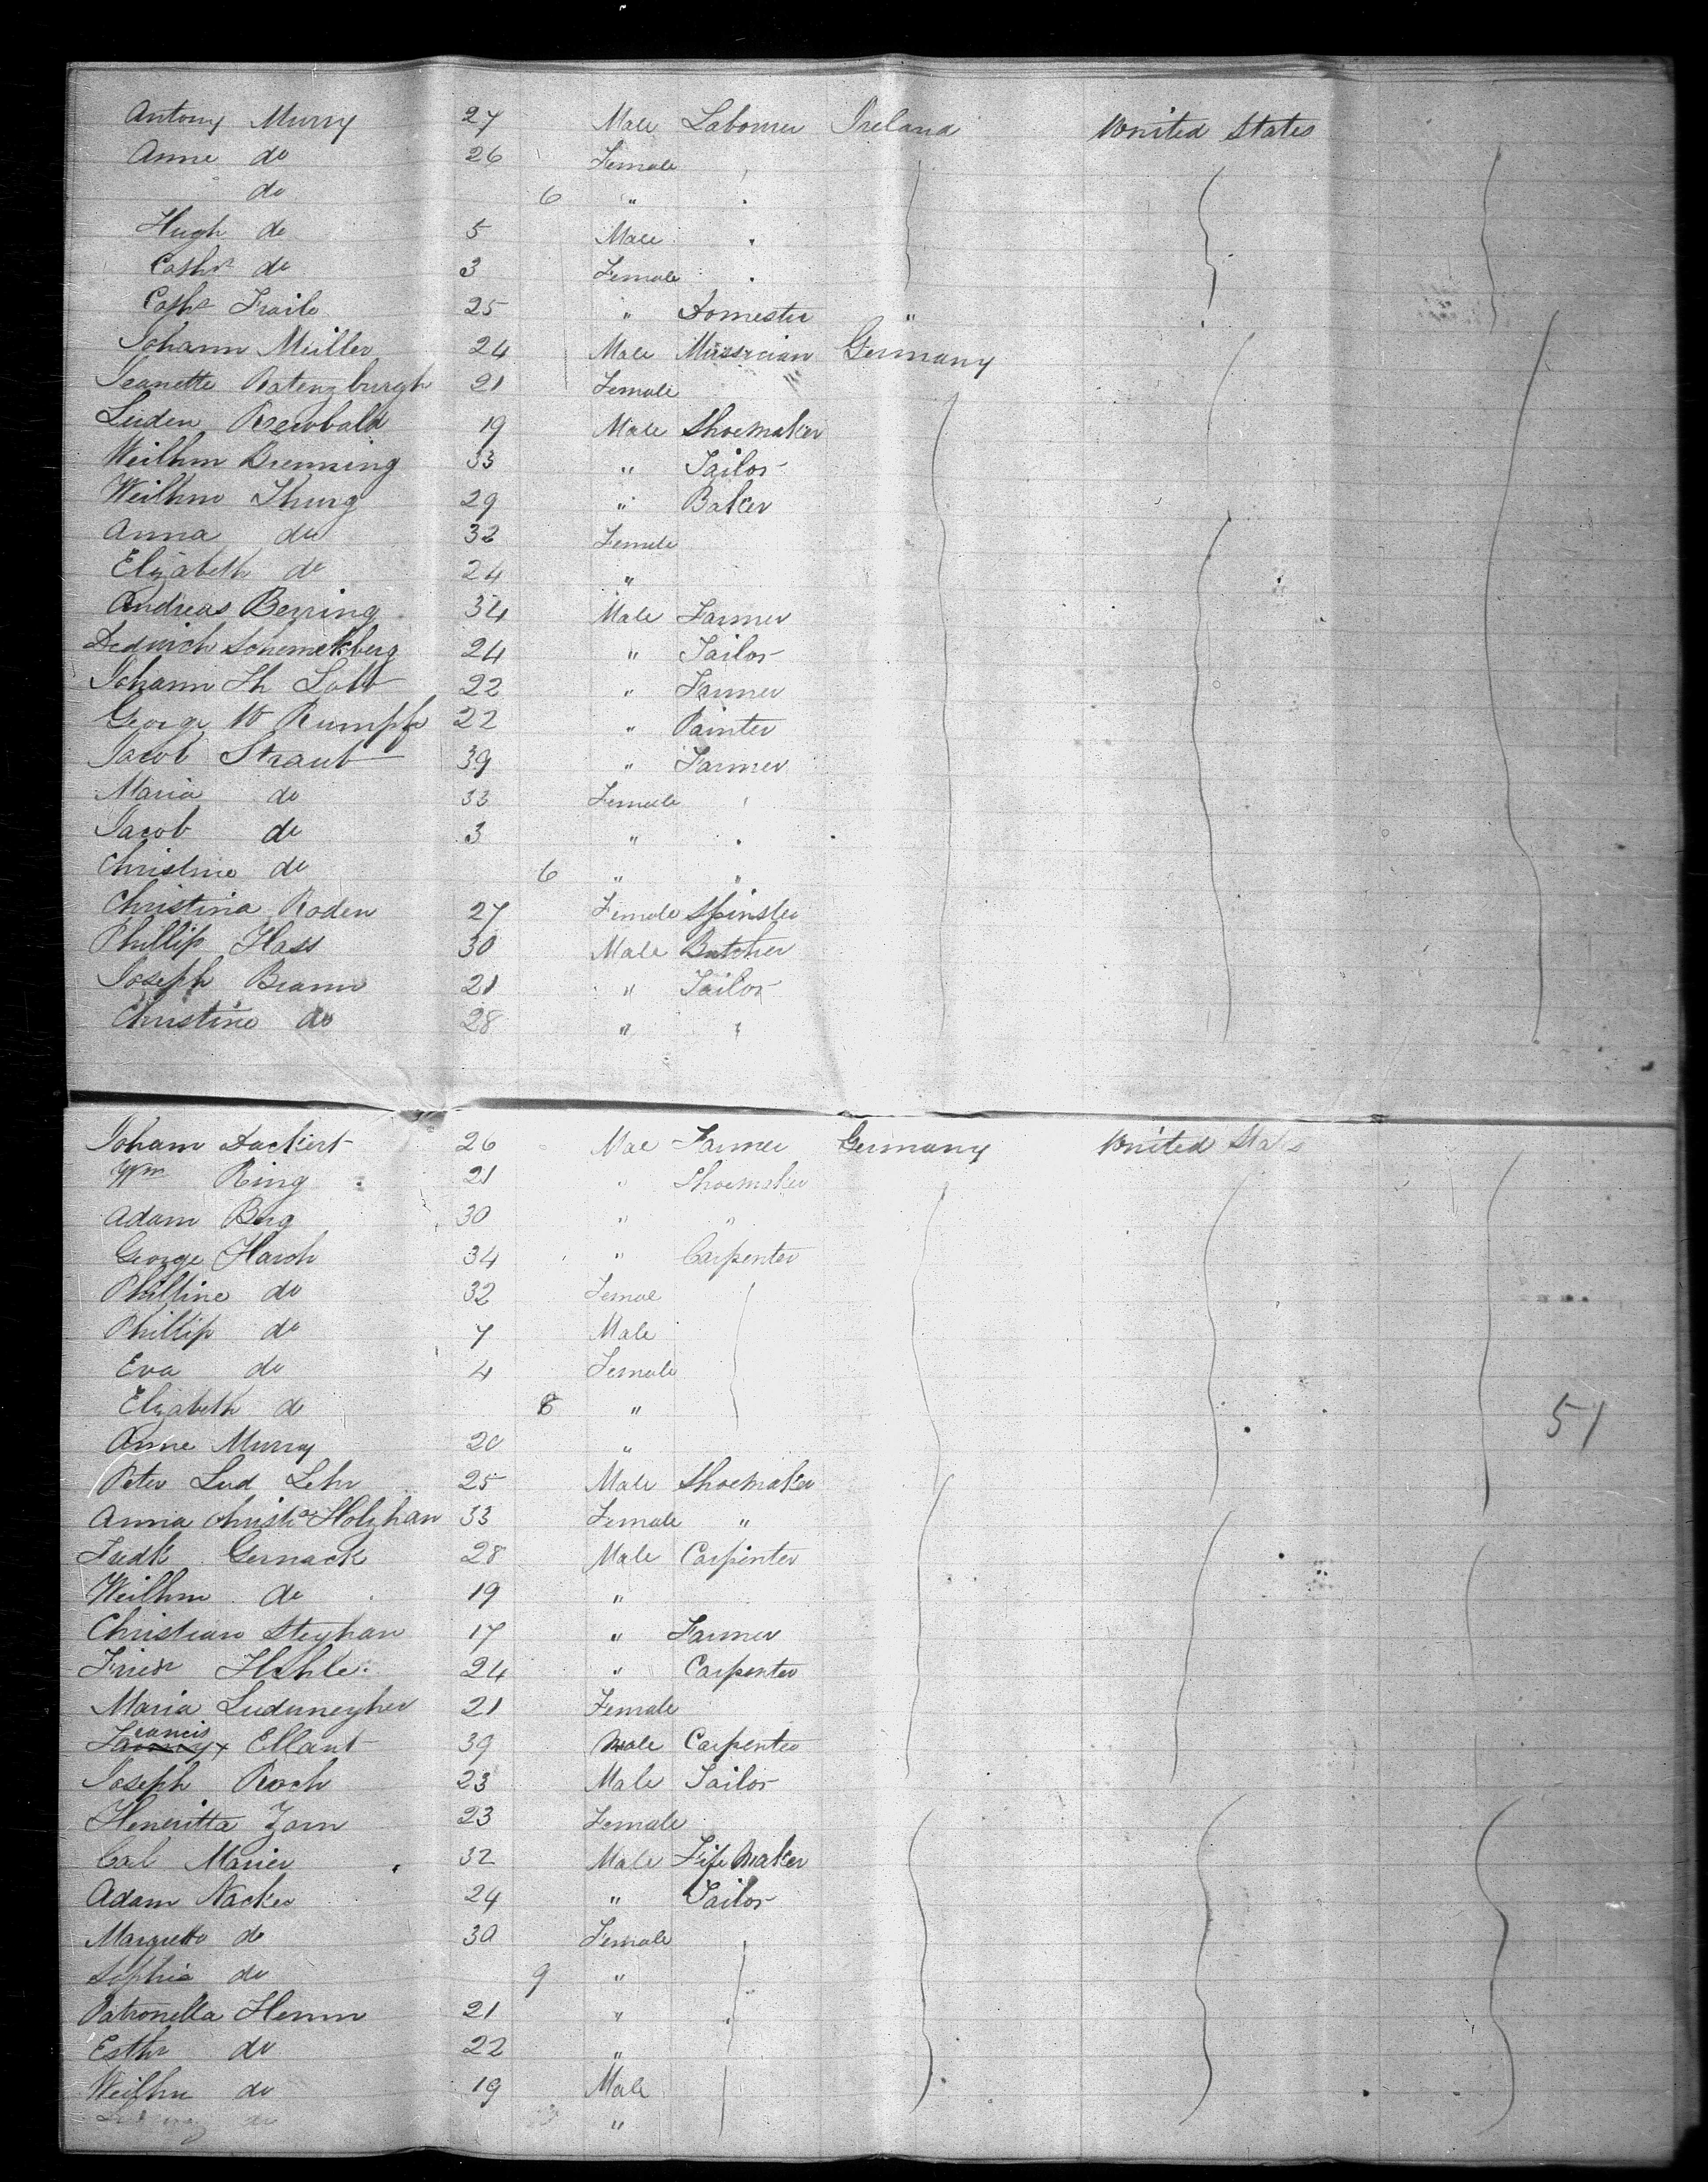 Antony Murry 27 Male Labourer Ireland United States
Anne do 26 Female
do 6 "
Hugh do 5 Male
Cathr do 3 Female
Cathr Fraile 25 " Domestic "
Johann Meiller 24 Male Mussician Germany
Jeanette Ratenzburgh 21 Female
Luden 19 Male Shoemaker
Weilhm Brenning 33 " Tailor
Weilhm Thurg 29 " Baker
Anna do 32 Female
Elizabeth do 24 "
Andreas Berring 34 Male Farmer
24 " Tailor
Johann Th Lott 22 " Farmer
George W Rumpf 22 " Painter
Jacob Straub 39 " Farmer
Maria do 33 Female
Jacob do 3 "
Christine do 6 "
Christina Roden 27 Female Spinster
Phillip Hass 30 Male Butcher
Joseph Braun 21 " Tailor
Christine do 28 " "
Johann Dackert 26 Mae Farmer Germany United States
Wm Ring 21 " Shoemaker
Adam Berg 30 " "
George Harch 34 " Carpenter
Philline do 32 Femae
Phillip do 7 Male
Eva do 4 Female
Elizabeth do 8 "
51
Anne Murry 20 "
Peter Lud Lehr 25 Male Shoemaker
Anna Christe Holzhan 33 Female "
Fredk Gernack 28 Male Carpenter
Weilhm do 19 "
Christian Steyhan 17 " Farmer
Friedr Hehle 24 " Carpenter
Maria Luduneyher 21 Female
Francis Ellant 39 Male Carpenter
Joseph Roch 23 Male Tailor
Heneritta Zorn 23 Female
Carl Marier 32 Male Fife Maker
Adam Nacker 24 " Tailor
Margretta do 30 Female
Sophia do 9 "
Patronella Hemm 21 "
Esthr do 22 "
Weilhm do 19 Male
do "